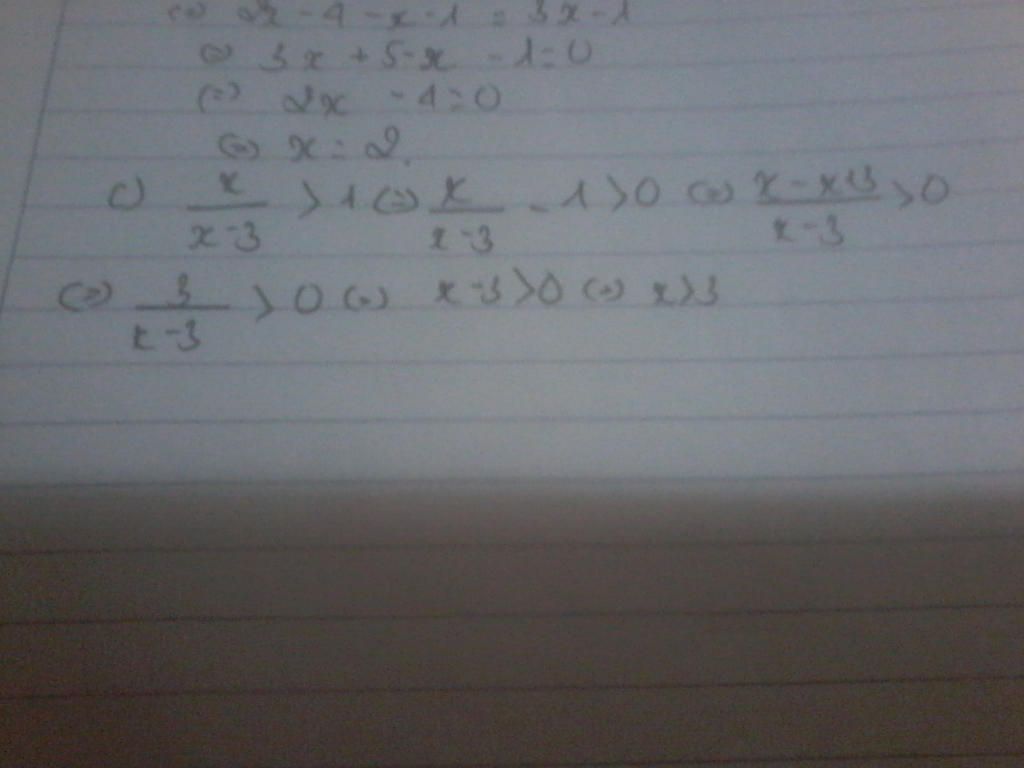 (=) 2x - 4 - x - 1 = 3x - 1
(=) 3x + 5 - x - 1 = 0
(=) 2x - 4 = 0
(=) x = 2.
c) x/(x-3) > 1 (=) x/(x-3) - 1 > 0 (=) (x-x+3)/(x-3) > 0
(=) 3/(x-3) > 0 (=) x-3 > 0 (=) x > 3